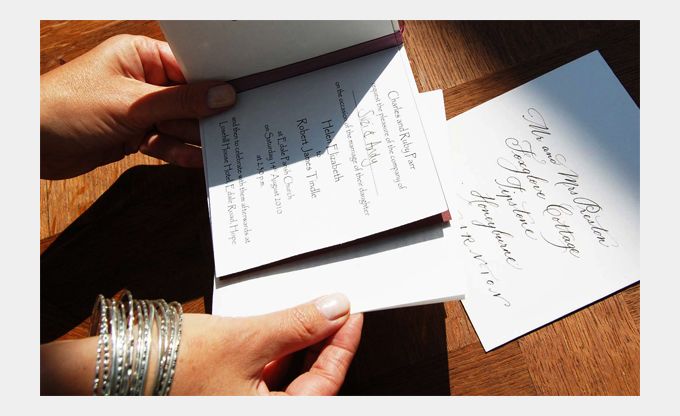 Charles and Ruby Parr
request the pleasure of the company of
Sue & Andy
on the occasion of the marriage of their daughter
Helen Elizabeth
to
Robert James Tindle
at Edale Parish Church
on Saturday 14th August 2010
at 2.30p.m.
and then to celebrate with them afterwards at
Losehill House Hotel, Edale Road, Hope
Mr and Mrs
Foxglove Cottage